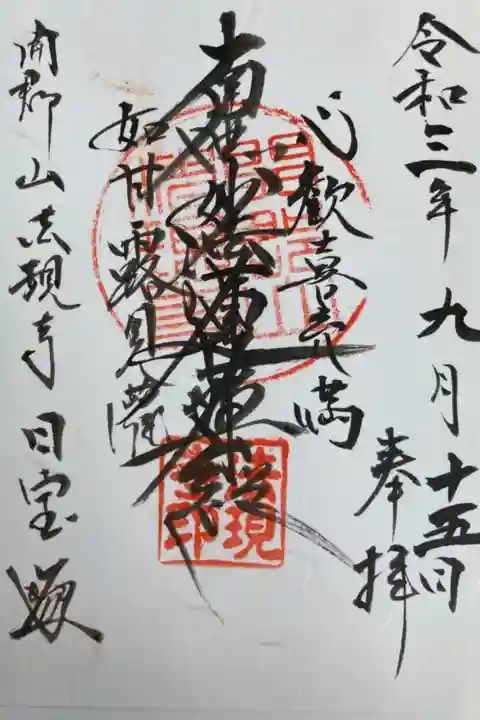 令和三年九月十五日
奉拝
心歓喜充満
南無妙法蓮華経
如甘露見灌
開郡山法現寺日宝
法現